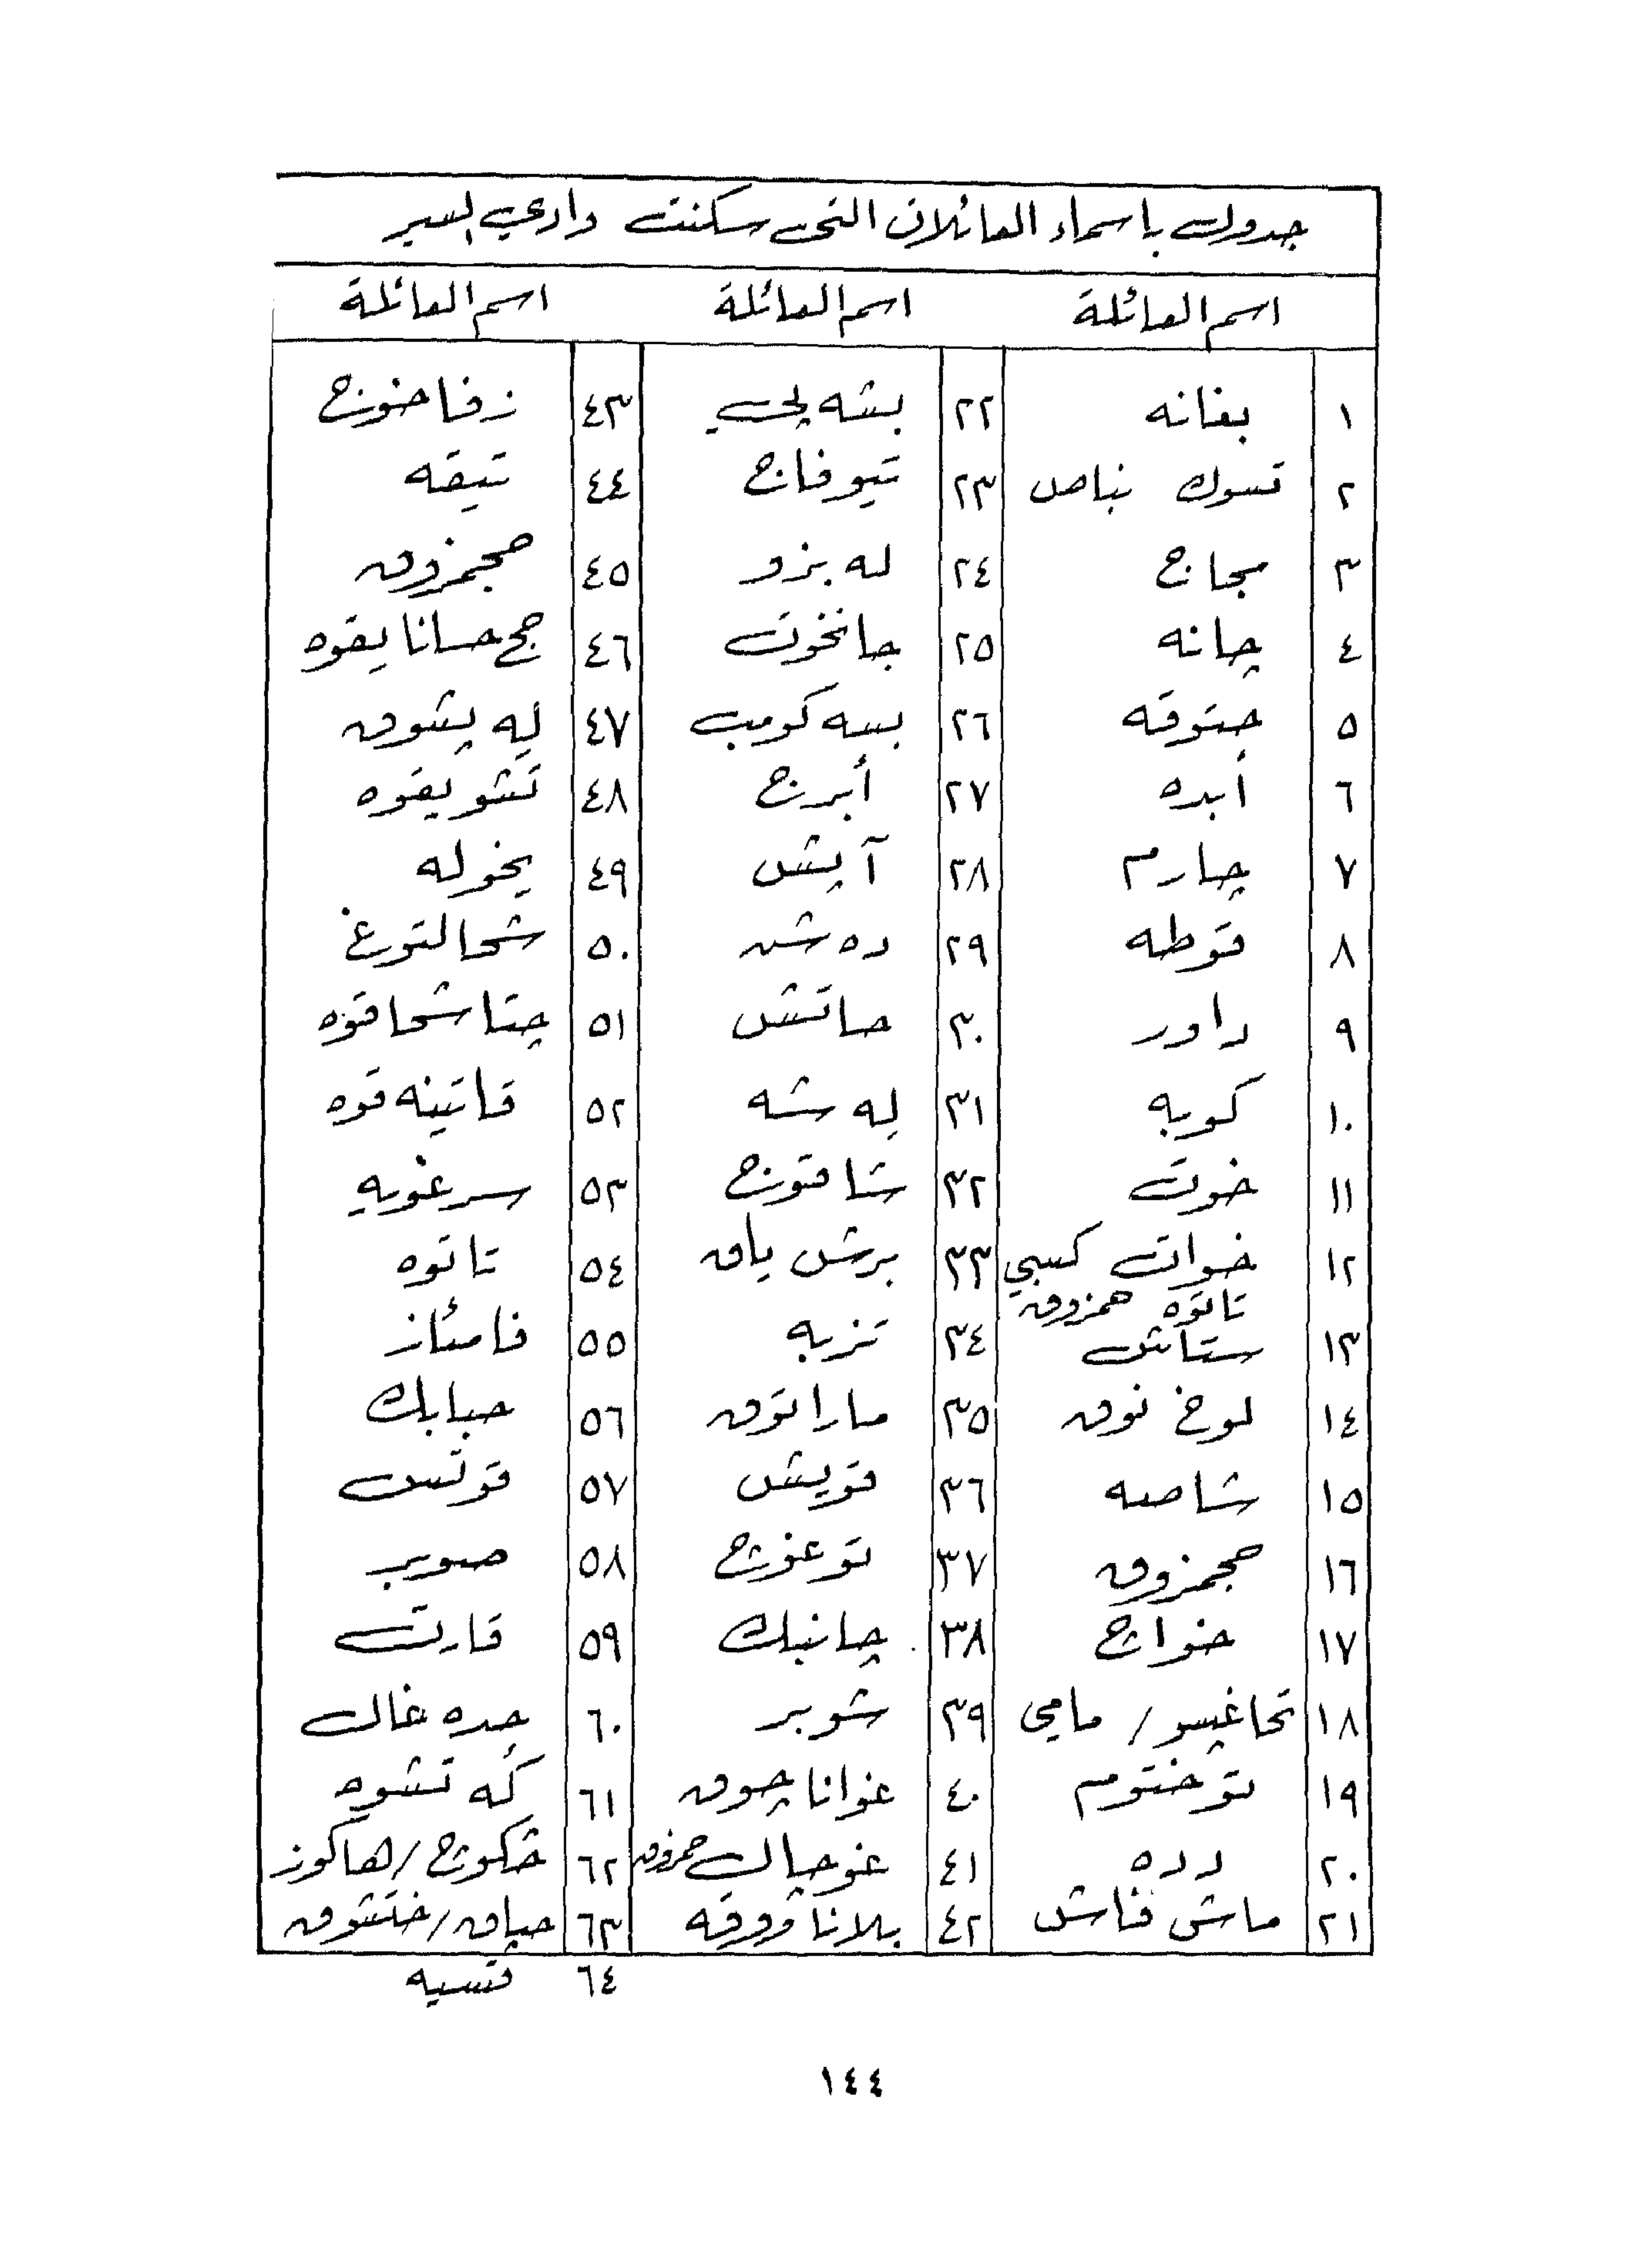 جدول باسماء العائلات التي سكنت وادي السير
اسم العائلة اسم العائلة اسم العائلة
١ بغانه ٢٢ بشه پچي ٤٣ زفاخوج
٢ تسوك نباص ٢٣ تيوفاج ٤٤ تيقه
٣ مجاج ٢٤ له بزو ٤٥ حجمزوق
٤ چانه ٢٥ جانخوت ٤٦ حج حسانا يقوه
٥ جتوقه ٢٦ بسه كومب ٤٧ له پشوق
٦ أبده ٢٧ أبرج ٤٨ تشو يقوه
٧ چارم ٢٨ آپش ٤٩ يخوله
٨ قوطه ٢٩ ده شه ٥٠ شحالتوغ
٩ داور ٣٠ حاتش ٥١ چتاشحاقوه
١٠ كوبه ٣١ له شه ٥٢ قاتينه قوه
١١ خوت ٣٢ شاقوج ٥٣ سرغويه
١٢ خوات كسبي ٣٣ برش ياق ٥٤ تاتوه
تاتوه همزوق
١٣ ستاش ٣٤ تزبه ٥٥ فامئاز
١٤ لوخ نوق ٣٥ ماراتوق ٥٦ حبابك
١٥ شاصه ٣٦ قويش ٥٧ قوتس
١٦ حجمزوق ٣٧ توغوج ٥٨ صوبر
١٧ خواج ٣٨ چانبك ٥٩ قارت
١٨ تحاغپسو / مامي ٣٩ شوبر ٦٠ جده غال
١٩ توختوم ٤٠ غواناچوق ٦١ كه تشوه
٢٠ دده ٤١ غوجال حمزوق ٦٢ خكوج / هاكوز
٢١ ماش فاش ٤٢ بلاناووقه ٦٣ حپاق / ختشوق
٦٤ قسيه
١٤٤